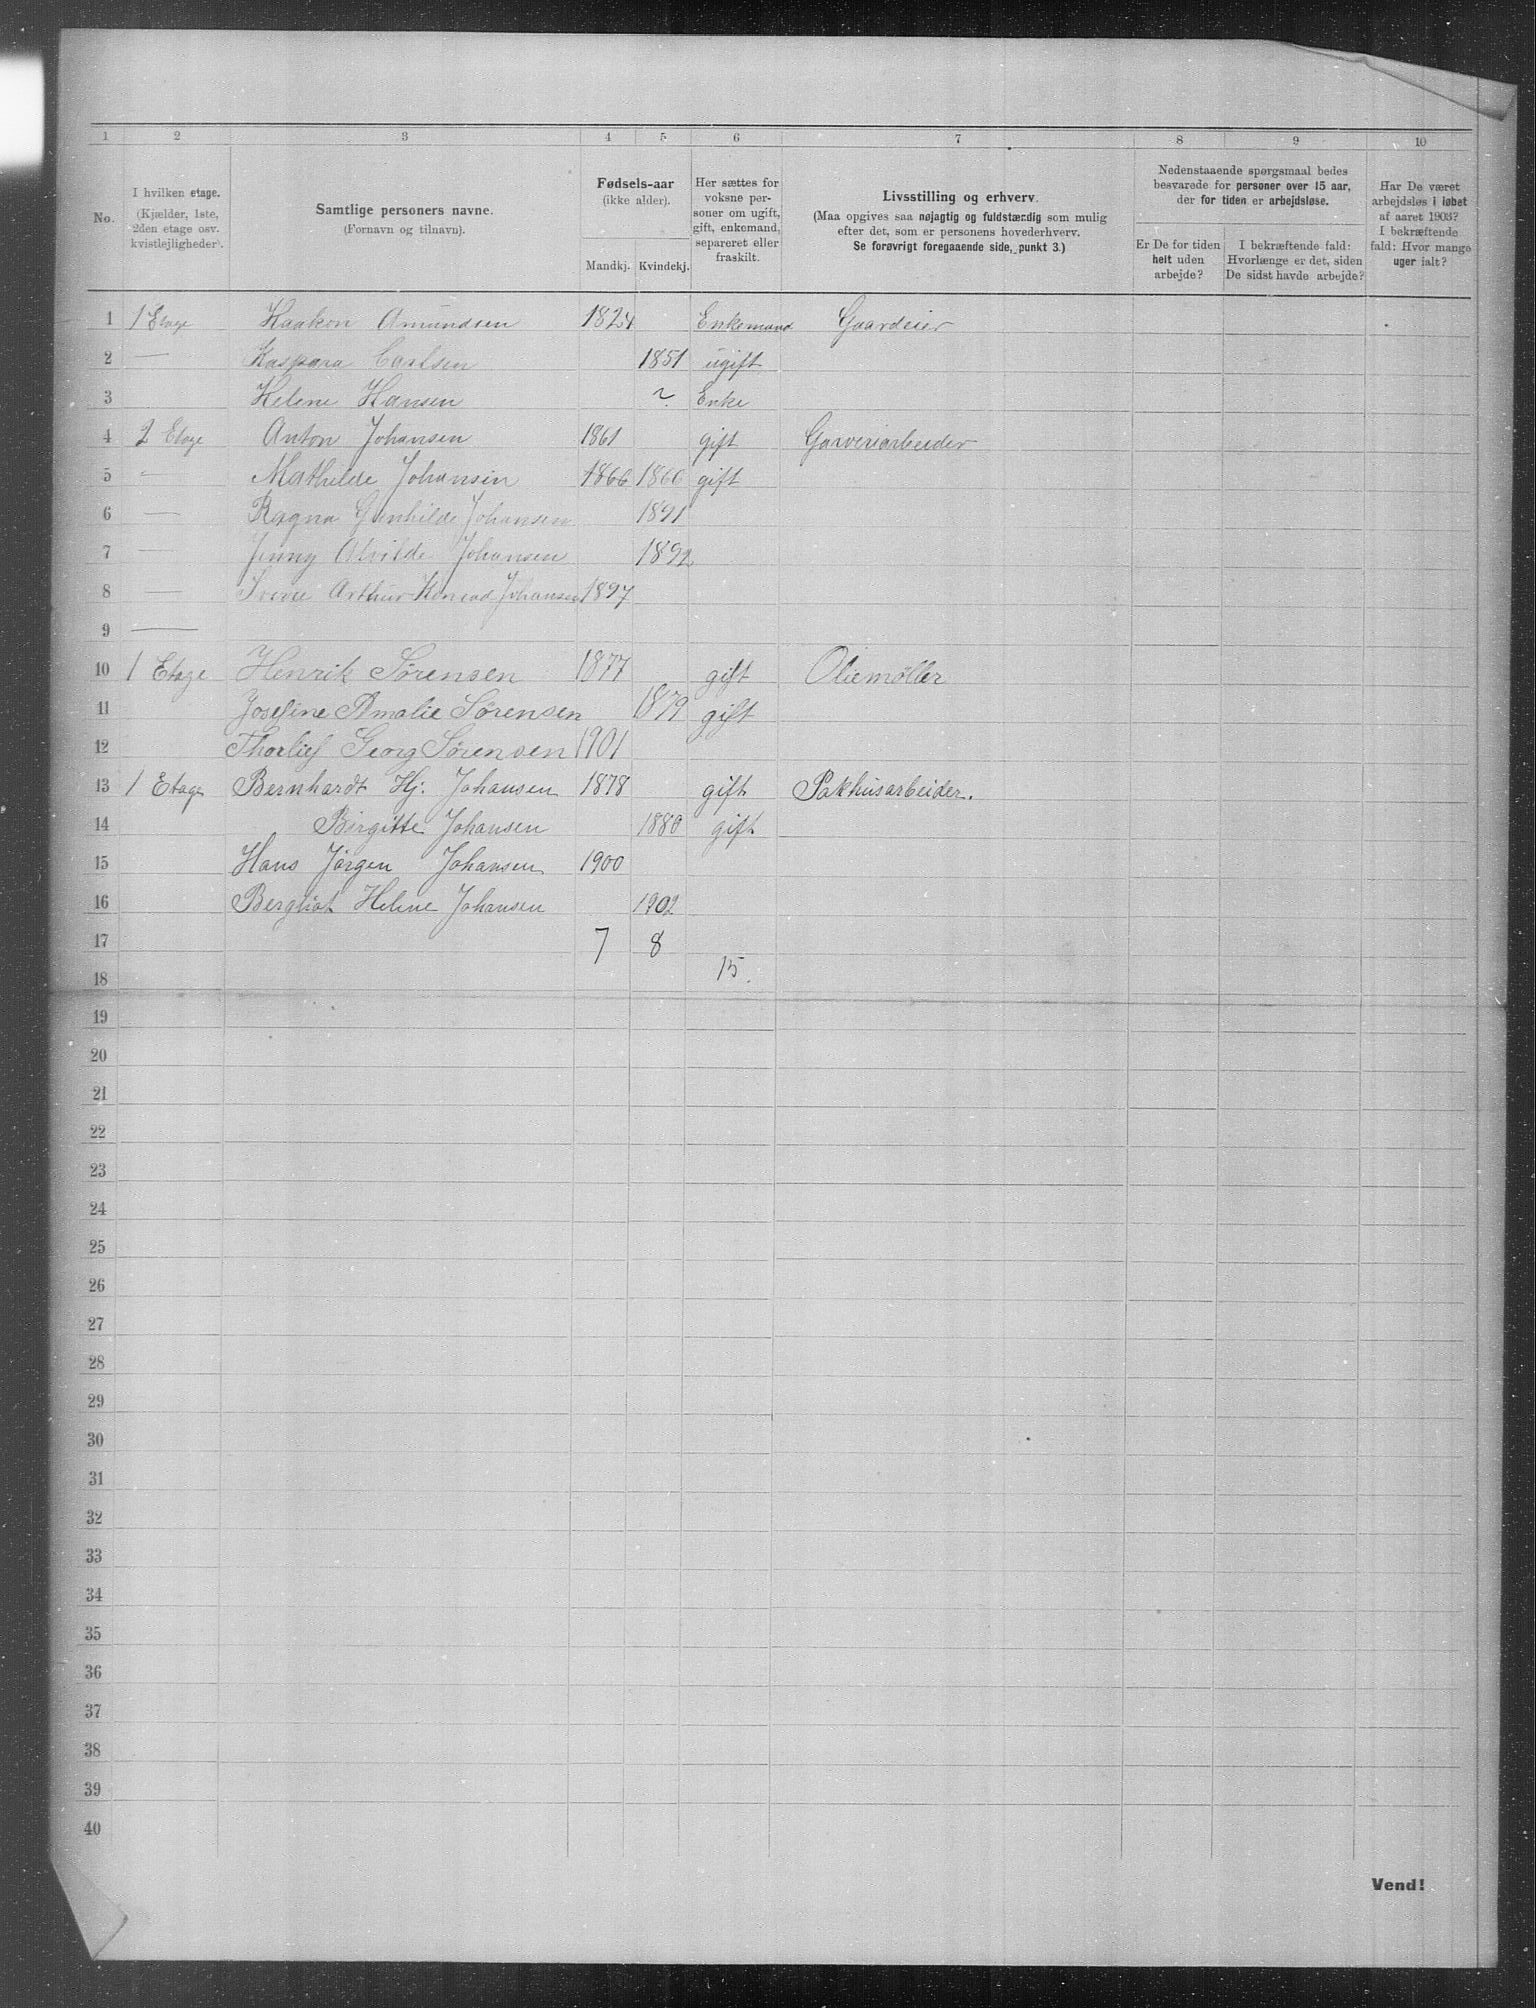 1 2 3 4 5 6 7 8 9 10
No.
I hvilken etage.
(Kjælder, 1ste,
2den etage osv.
kvistlejligheder).
Samtlige personers navne.
(Fornavn og tilnavn).
Fødsels-aar
(ikke alder).
Mandkj. Kvindekj.
Her sættes for
voksne per-
soner om ugift,
gift, enkemand,
separeret eller
fraskilt.
Livsstilling og erhverv.
(Maa opgives saa nøjagtig og fuldstændig som mulig
efter det, som er personens hovederhverv.
Se forøvrigt foregaaende side, punkt 3.)
Nedenstaaende spørgsmaal bedes
besvarede for personer over 15 aar,
der for tiden er arbejdsløse.
Er De for tiden
helt uden
arbejde?
I bekræftende fald:
Hvorlænge er det, siden
De sidst havde arbejde?
Har De været
arbejdsløs i løbet
af aaret 1903?
I bekræftende
fald: Hvor mange
uger ialt?
1 1 Etage Haakon Amundsen 1824 Enkemand Gaardeier
2 — Kaspara Carlsen 1851 ugift
3 Helene Hansen ? Enke
4 2 Etage Anton Johansen 1861 gift Garveriarbeider
5 — Mathilde Johansen 1866 1866 gift
6 — Ragna Gunhilde Johansen 1891
7 — Jenny Alvilde Johansen 1892
8 — Arthur Konrad Johansen 1897
9 —
10 1 Etage Henrik Sørensen 1877 gift Oliemøller
11 Josefine Amalie Sørensen 1879 gift
12 Thorlief Georg Sørensen 1901
13 1 Etage Bernhardt Hj. Johansen 1878 gift Pakhusarbeider.
14 Birgitte Johansen 1880 gift
15 Hans Jørgen Johansen 1900
16 Bergliot Helene Johansen 1902
17 7 8
18 15.
19
20
21
22
23
24
25
26
27
28
29
30
31
32
33
34
35
36
37
38
39
40
Vend!